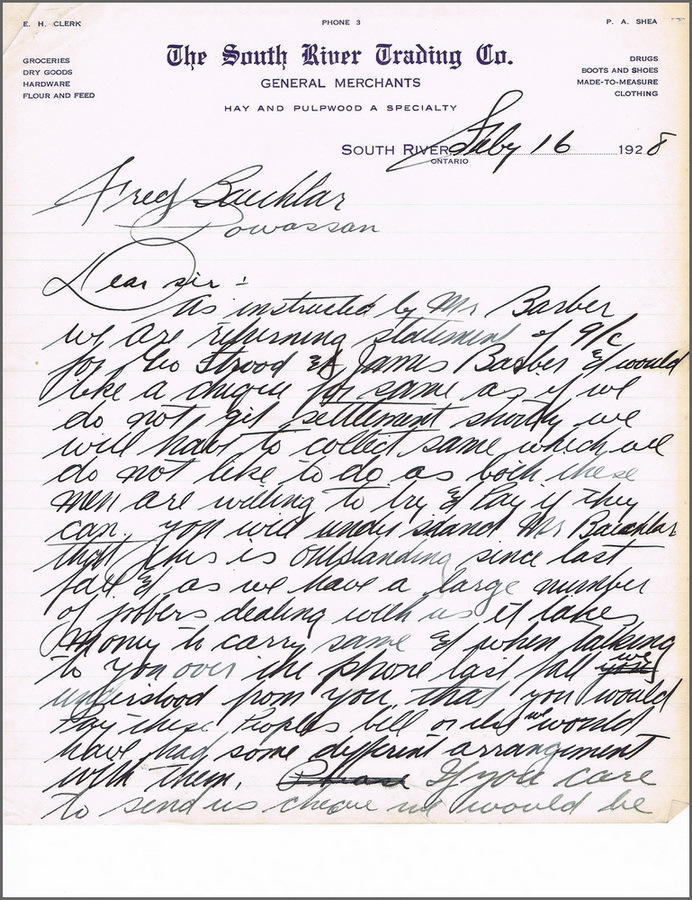 E. H. CLERK PHONE 3 P. A. SHEA
The South River Trading Co.
GENERAL MERCHANTS
HAY AND PULPWOOD A SPECIALTY
GROCERIES
DRY GOODS
HARDWARE
FLOUR AND FEED
DRUGS
BOOTS AND SHOES
MADE-TO-MEASURE
CLOTHING
SOUTH RIVER, Feby 16 1928
ONTARIO
Fred Baechlar
Powassan
Dear sir :
As instructed by Mr Barber
we are returning statement of a/c
for Geo Strood & James Barber & would
like a cheque for same as if we
do not git settlement shortly we
will have to collect same which we
do not like to do as both these
men are willing to try & Pay if they
can. you will under stand Mr Baechlar
that this is outstanding since last
fall & as we have a large number
of jobbers dealing with us it takes
money to carry same & when talking
to you over the phone last fall we
understood from you that you would
Pay these Peoples bill or else we would
have had some different arrangement
with them. If you care
to send us cheque we would be